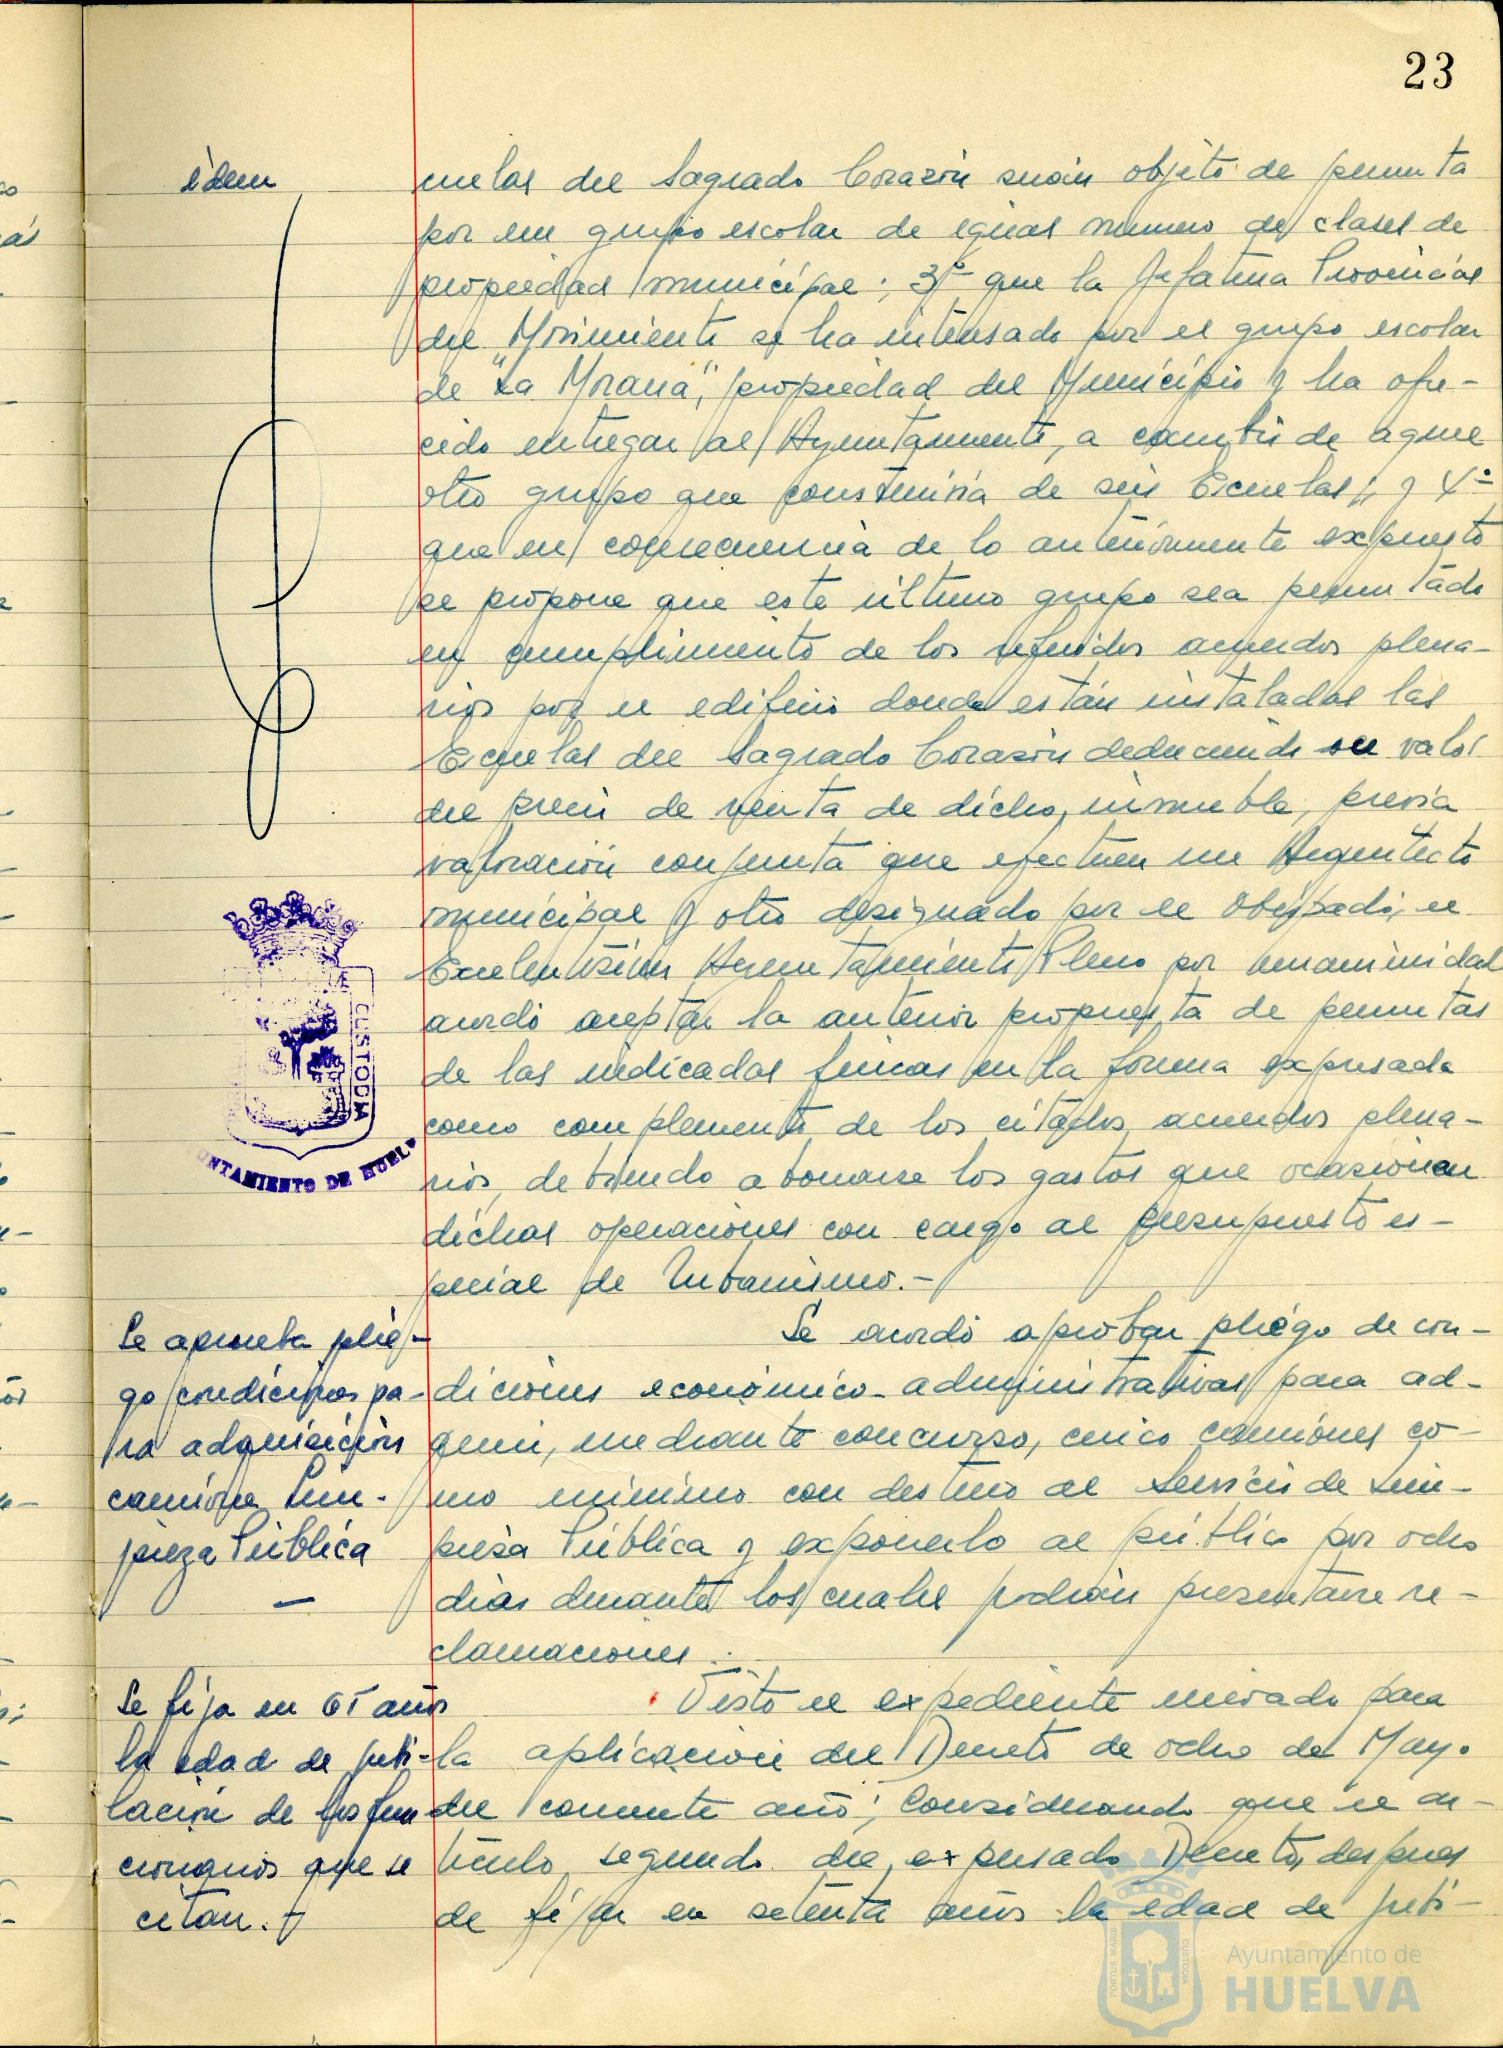 23
idem
cuelas del Sagrado Corazón serán objeto de permuta
por un grupo escolar de igual número de clases de
propiedad municipal; 3º que la Jefatura Provincial
del Movimiento se ha interesado por el grupo escolar
de "La Morana", propiedad del Municipio y ha ofre-
cido entregar al Ayuntamiento, a cambio de aquel
otro grupo que construiría de seis Escuelas; y 4º
que en consecuencia de lo anteriormente expuesto
se propone que este último grupo sea permutado
en cumplimiento de los referidos acuerdos plena-
rios por el edificio donde están instaladas las
Escuelas del Sagrado Corazón deduciendo su valor
del precio de venta de dicho inmueble, previa
valoración conjunta que efectúen un Arquitecto
municipal y otro designado por el Obispado, el
Excelentísimo Ayuntamiento Pleno por unanimidad
acordó aceptar la anterior propuesta de permutas
de las indicadas fincas en la forma expresada
como complemento de los citados acuerdos plena-
rios, debiendo abonarse los gastos que ocasionen
dichas operaciones con cargo al presupuesto es-
pecial de Urbanismo.-
CUSTODIA
UNTAMIENTO DE HUEL
Se aprueba plie-
go condiciones pa-
ra adquisición
camiones Lim-
pieza Pública
Se acordó aprobar pliego de con-
diciones económico-administrativas para ad-
quirir, mediante concurso, cinco camiones co-
mo mínimo con destino al Servicio de Lim-
pieza Pública y exponerlo al público por ocho
días durante los cuales podrán presentarse re-
clamaciones.
Se fija en 65 años
la edad de jubi-
lación de los fun
cionarios que se
citan.
Visto el expediente incoado para
la aplicación del Decreto de ocho de Mayo
del corriente año; Considerando que el ar-
tículo segundo del expresado Decreto, después
de fijar en setenta años la edad de jubi-
PORTUS MARIS
CUSTODIA
Ayuntamiento de
HUELVA